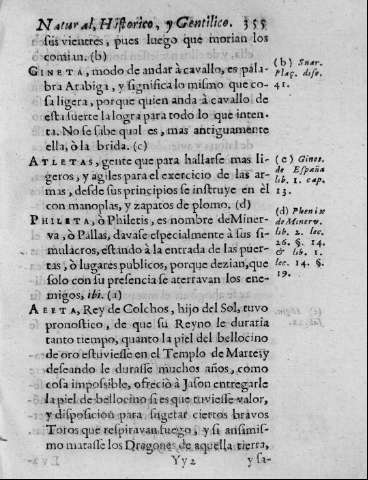 Natural, Historico, y Gentilico. 355
sus vientres, pues luego que morian los
comian. (b)
GINETA, modo de andar à cavallo, es pala-
bra Arabiga, y significa lo mismo que co-
sa ligera, porque quien anda à cavallo de
esta suerte la logra para todo lo que inten-
ta. No se sabe qual es, mas antiguamente
ella, ò la brida. (c)
ATLETAS, gente que para hallarse mas li-
geros, y agiles para el exercicio de las ar-
mas, desde sus principios se instruye en el
con manoplas, y zapatos de plomo. (d)
PHILETA, ò Philetis, es nombre de Miner-
va, ò Pallas, davase especialmente à sus si-
mulacros, estando à la entrada de las puer-
tas, ò lugares publicos, porque dezian, que
solo con su presencia se aterravan los ene-
migos, ibi. (a)
AEETA, Rey de Colchos, hijo del Sol, tuvo
pronostico, de que su Reyno le duraria
tanto tiempo, quanto la piel del bellocino
de oro estuviesse en el Templo de Marte; y
deseando le durasse muchos años, como
cosa impossible, ofreciò à Jason entregarle
la piel de bellocino si es que tuviesse valor,
y disposicion para sugetar ciertos bravos
Toros que respiravan fuego, y si ansimis-
mo matasse los Dragones de aquella tierra,
Yy2 y sa-
(b) Suar.
Plaç. disc.
41.
(c) Gines.
de España
lib. 1. cap.
13.
(d) Phenix
de Minerv.
lib. 2. loc.
26. §. 14.
& lib. 1.
loc. 14. §.
19.